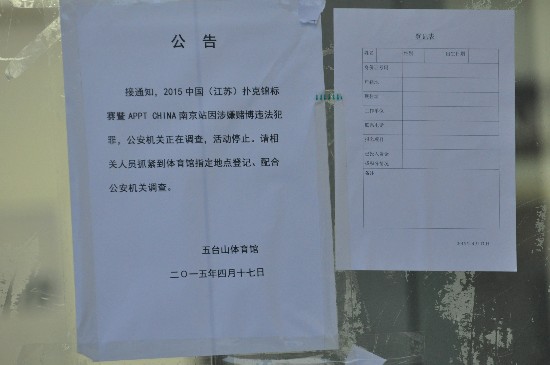 公 告
接通知，2015 中国（江苏）扑克锦标
赛暨 APPT CHINA 南京站因涉嫌赌博违法犯
罪，公安机关正在调查，活动停止。请相
关人员抓紧到体育馆指定地点登记、配合
公安机关调查。
五台山体育馆
二〇一五年四月十七日
登记表
姓名
性别
备注